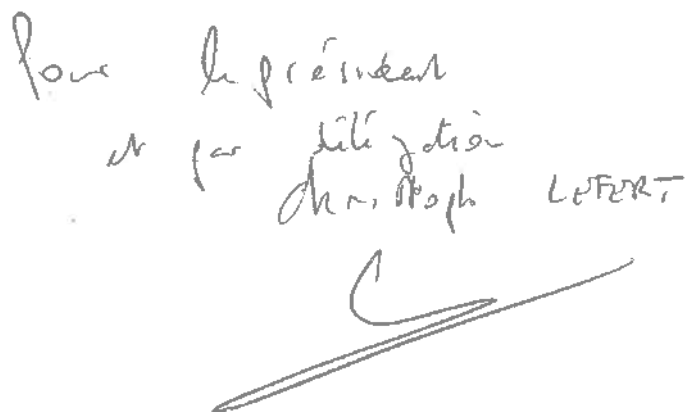 Pour le président
et par délégation
Christophe LEFERT